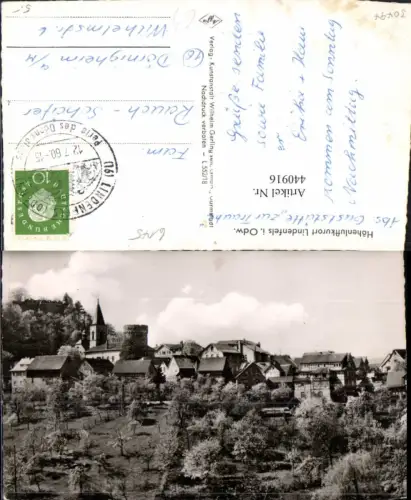 Grüße senden
sowie Familie
kommen am Sonntag
Nachmittag.
Fam.
Rauch - Schäfer
Dörnigheim a/M
Wilhelmstr. 6
Abs. Gaststätte „zur Traube"
Höhenluftkurort Lindenfels i. Odw.
Verlag: Kunstanstalt Wilhelm Gerling
Nachdruck verboten - L 552/18
Artikel Nr.
440916
LINDENF
Perle des Odenw
12.7.60-15
10
DEUTSCHE BUNDESPOST